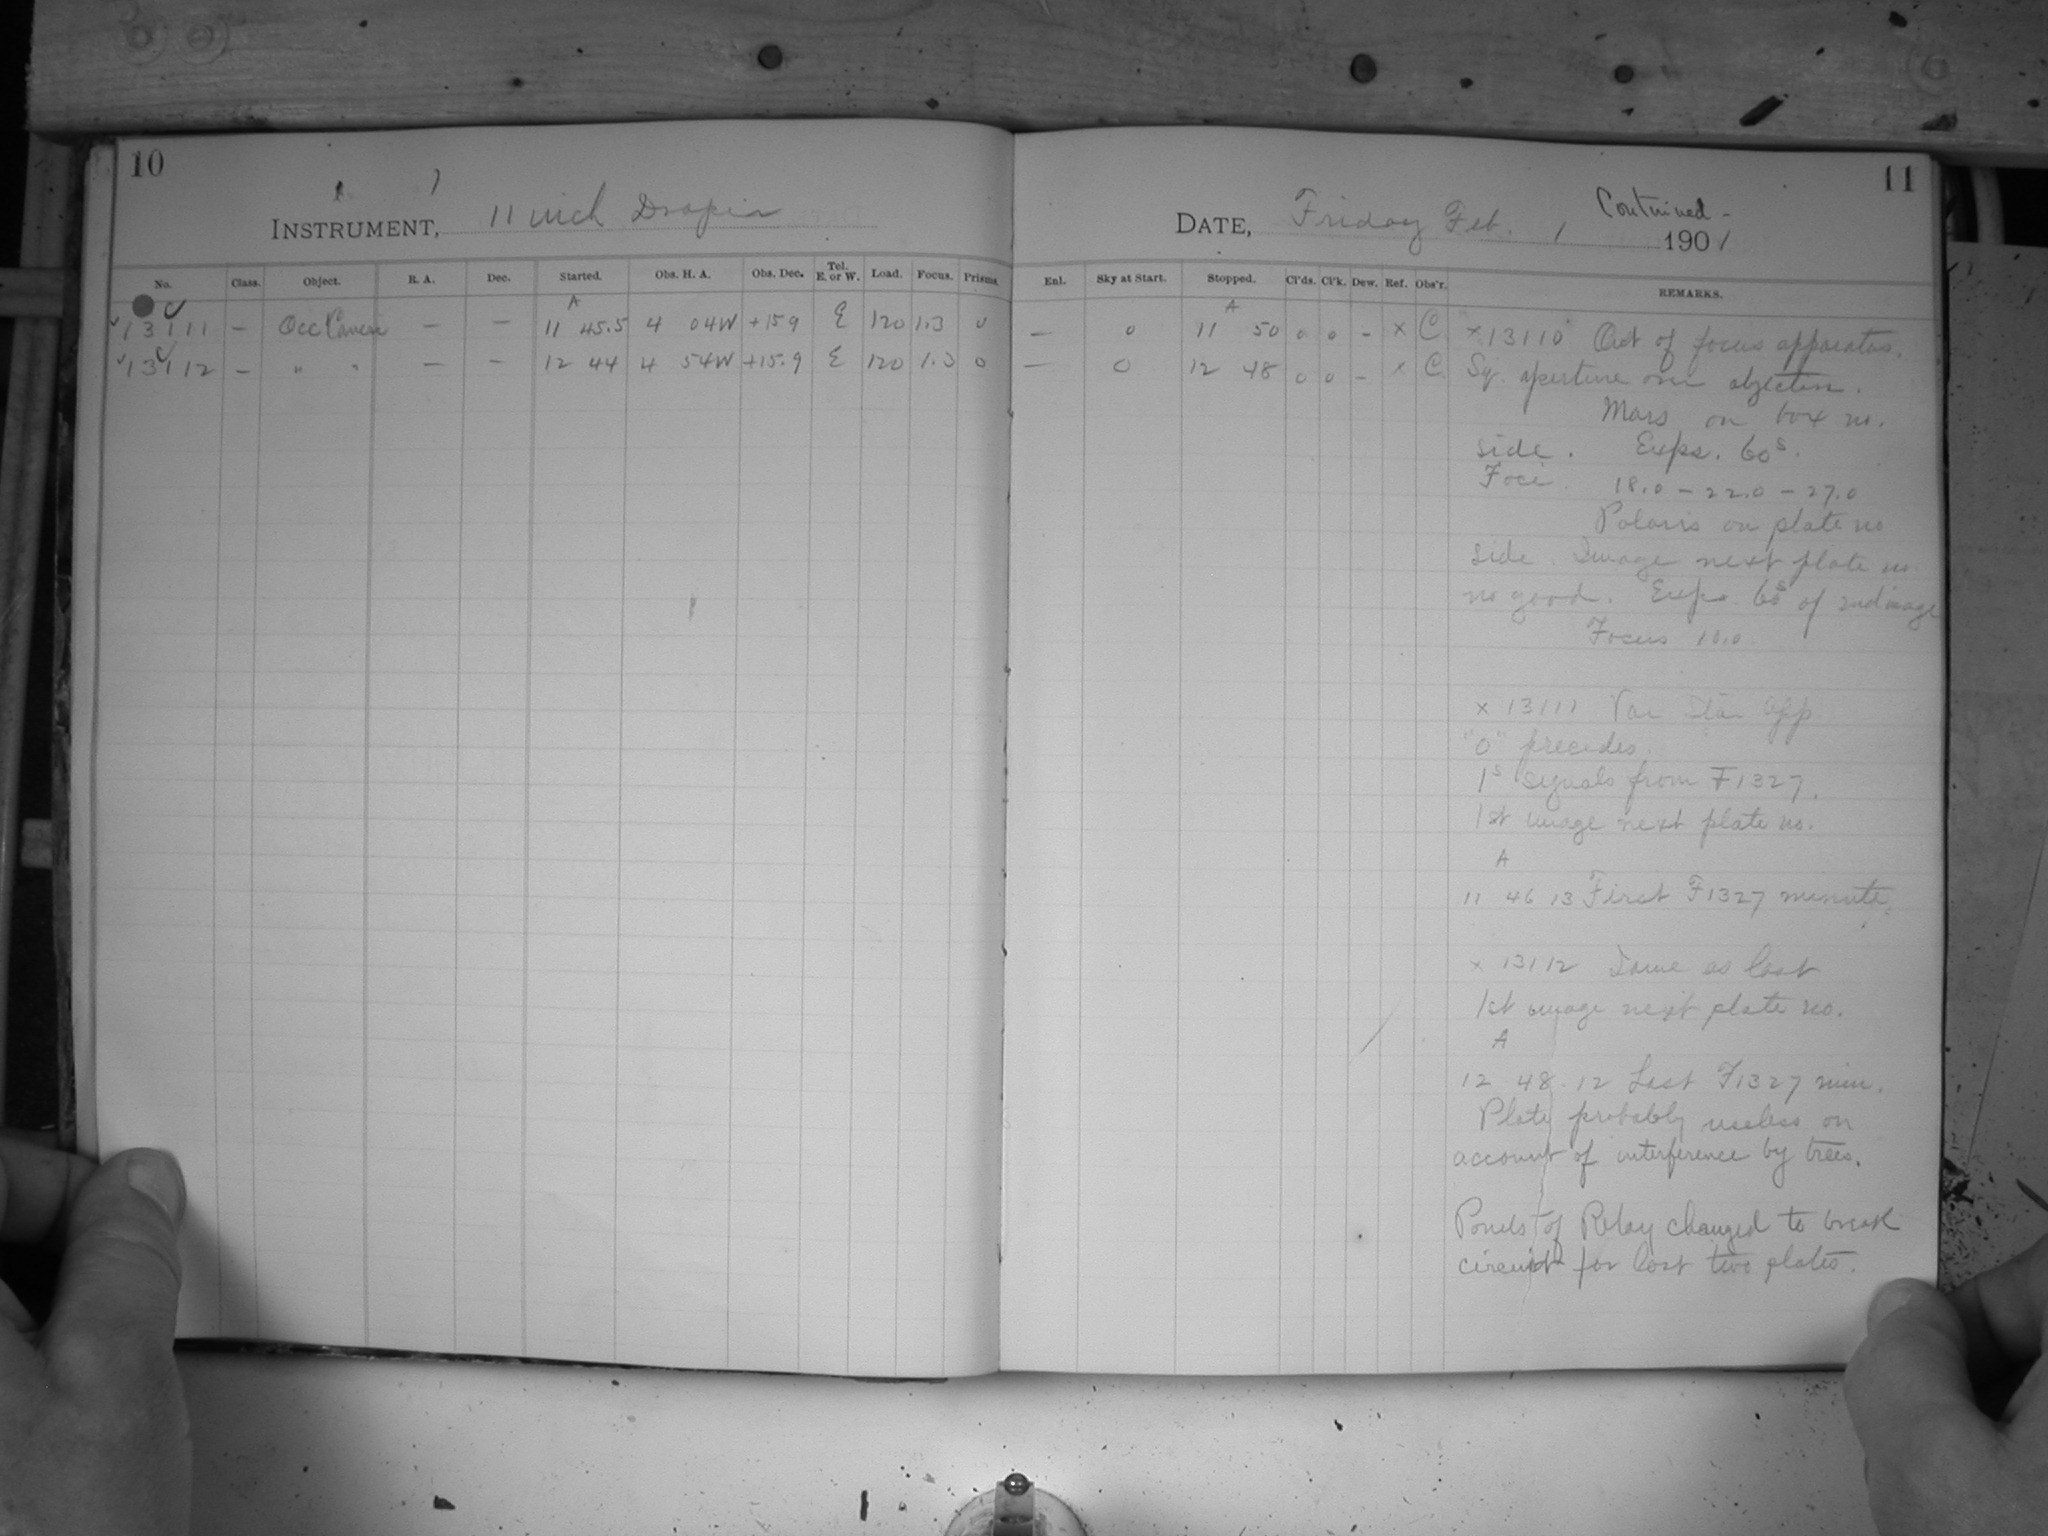 10
INSTRUMENT, 11 inch Draper
No. Class. Object. R. A. Dec. Started. Obs. H. A. Obs. Dec. Tel. E. or W. Load. Focus. Prisms.
A
13111 — Occ — — 11 45.5 4 04W +15.9 E 120 1.3 0
13112 — " " — — 12 44 4 54W +15.9 E 120 1.3 0
11
Continued -
DATE, Friday Feb. 1 1901
Enl. Sky at Start. Stopped. Cl'ds. Cl'k. Dew. Ref. Obs'r. REMARKS.
A
— 0 11 50 0 0 - x C
— 0 12 48 0 0 - x C.
x 13110 Out of focus apparatus.
Sq. aperture over objective.
Mars on box no.
side. Exps. 60s.
Foci. 18.0 - 22.0 - 27.0
Polaris on plate no
side. Image next plate no.
no good. Exp. 60s of 2nd image
Focus
x 13111 Var Star App.
"0" precedes.
1s signals from F1327.
1st image next plate no.
A
11 46 13 First F1327 minute.
x 13112 Same as last
1st image next plate no.
A
12 48 12 Last F1327 min.
Plate probably useless on
account of interference by trees.
of Relay changed to break
circuit for last two plates.